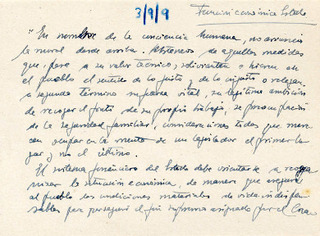 3/9/9
"En nombre de la conciencia humana, no arruinéis
la moral desde arriba. Absteneos de aquellas medidas
que, pese a su valor técnico, o hieran en
el pueblo el sentido de lo justo y de lo injusto o releguen
a segundo término su fuerza vital, su legítima ambición
de recoger el fruto de su propio trabajo, su preocupación
de la seguridad familiar, consideraciones todas que merecen
ocupar en la mente de un legislador el primer lu-
gar y no el último.
El sistema financiero del Estado debe orientarse a reorga-
nizar la situación económica, de manera que asegure
al pueblo las condiciones materiales de vida indispen-
sables para perseguir el fin supremo asignado por el Crea-